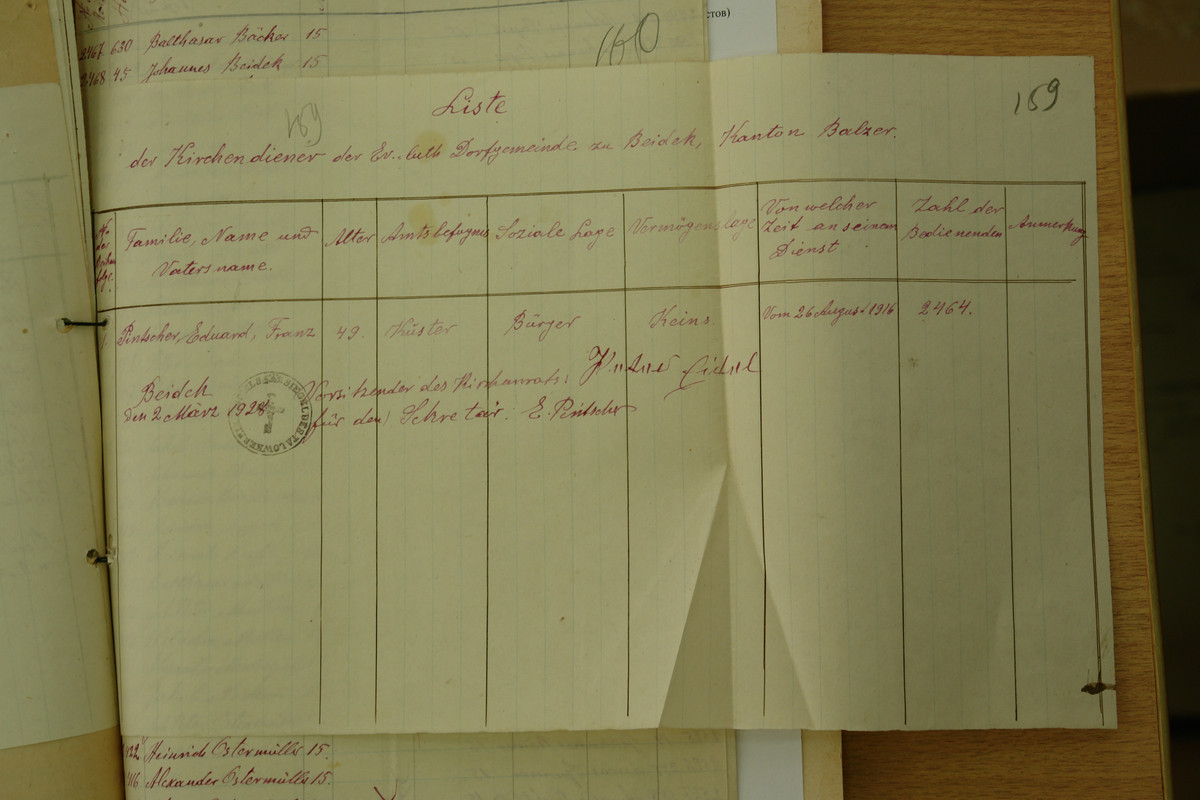 стов)
2467 630 Balthasar Bäcker 15
2468 45 Johannes Beideck 15
160
159
159
Liste
der Kirchendiener der Ev.-luth Dorfgemeinde zu Beideck, Kanton Balzer.
Familie, Name und Vatersname.
Alter
Amtsbefugnis
Soziale Lage
Vermögenslage
Von welcher Zeit an seinem Dienst
Zahl der Bedienenden
Anmerkung
1. Pintscher, Eduard, Franz 49. Küster Bürger Keins. Vom 26 August 1916 2464.
Beideck
den 2 März 1928
Vorsitzender des Kirchenrats:
für den Sekretär: E. Pintscher
Heinrich Ostermüller 15.
Alexander Ostermüller 15.